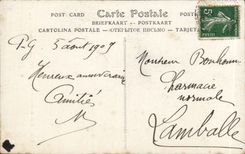 POST CARD Carte Postale
BRIEFKAART — POSTKARTE
CARTOLINA POSTALE — ОТКРЫТОЕ ПИСЬМО — TARJET
P.G 5 aout 1907
Heureux anniversaire
Amitiés
M
Monsieur Bonhomme
Pharmacie
normale
Lamballe
5